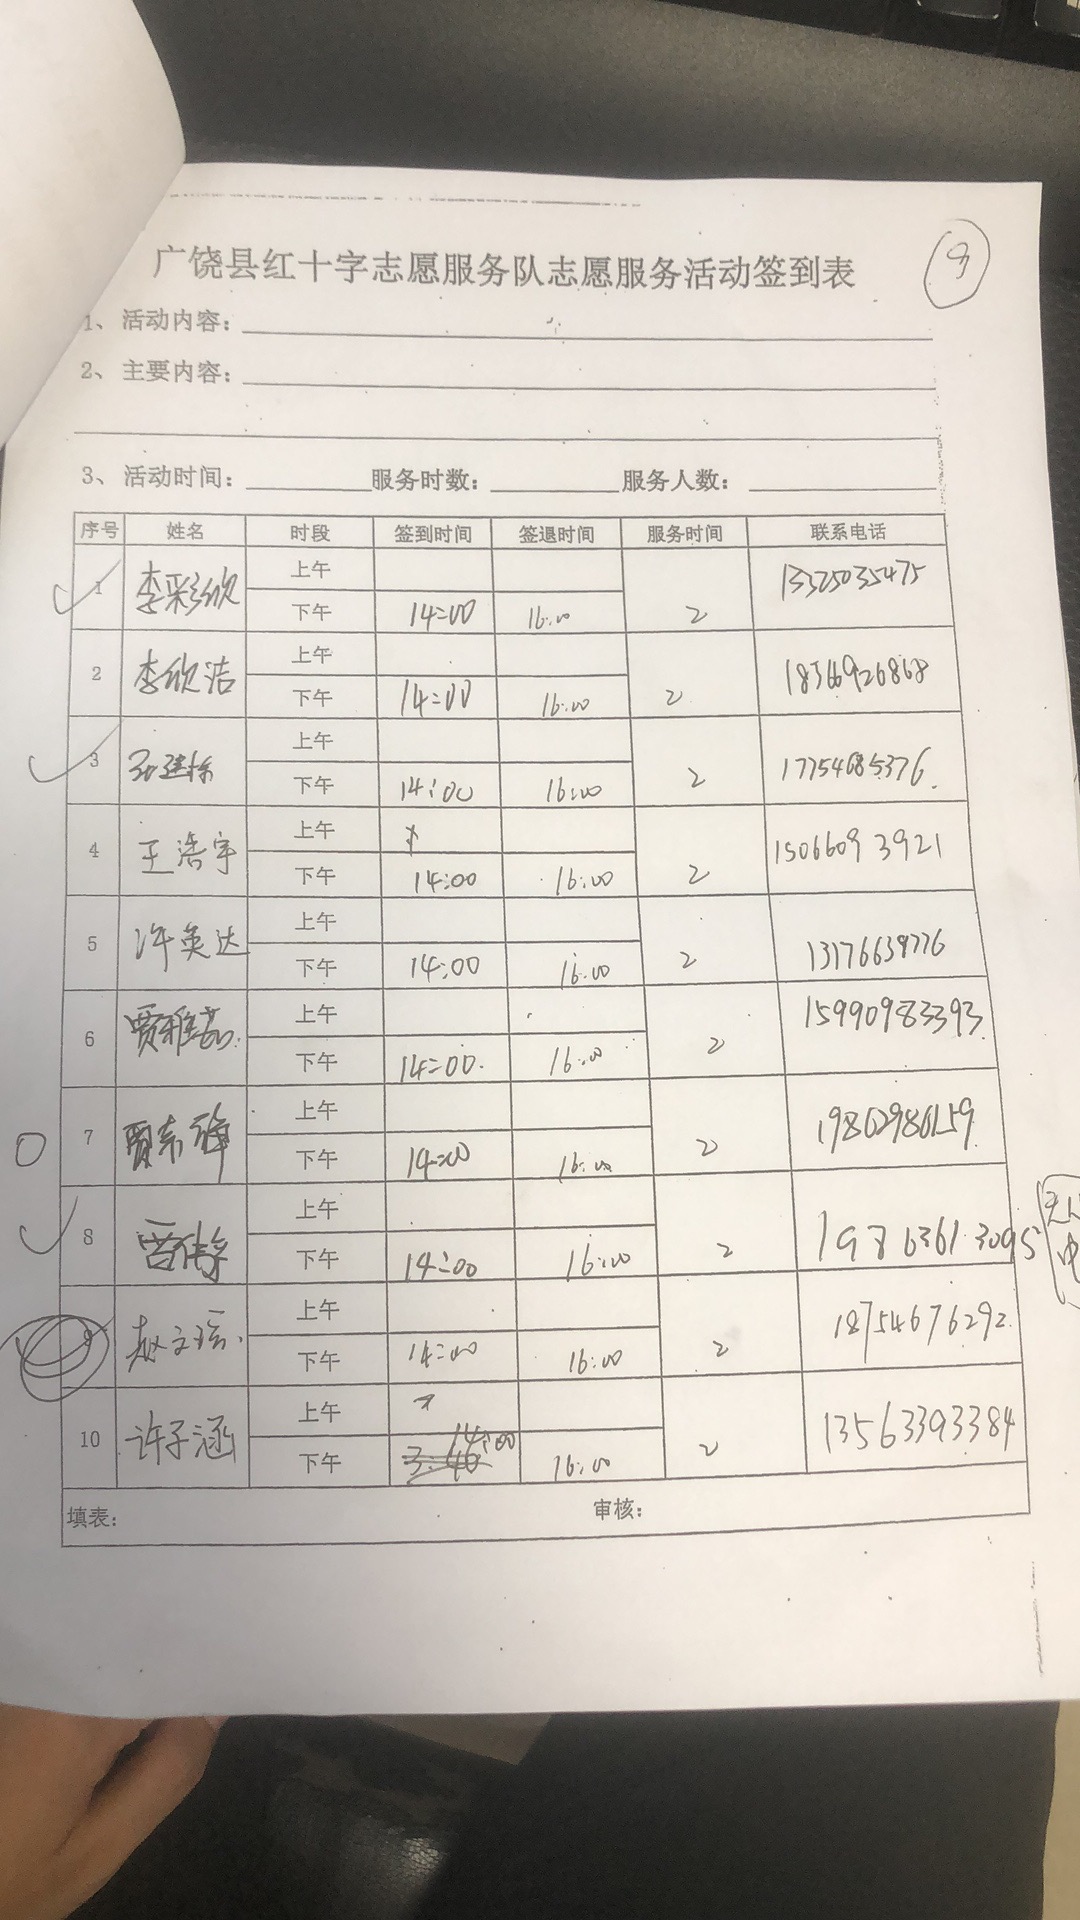 广饶县红十字志愿服务队志愿服务活动签到表
9
1、活动内容：
2、主要内容：
3、活动时间： 服务时数： 服务人数：
序号 姓名 时段 签到时间 签退时间 服务时间 联系电话
1 李彩欣 上午 13325035475
下午 14:00 16:00 2
2 李欣洁 上午 18346926868
下午 14:00 16:00 2
3 上午
下午 14:00 16:00 2 17754685376.
4 王浩宇 上午 15066093921
下午 14:00 16:00 2
5 许英达 上午
下午 14:00 16:00 2 13176639776
6 上午 15990983393.
下午 14:00. 16:00 2
7 上午 19862986159.
下午 14:00 16:00 2
8 上午
下午 14:00 16:00 2 19863613095
9 上午 18754676292.
下午 14:00 16:00 2
10 许子涵 上午 13563393384
下午 14:00 16:00 2
填表： 审核：